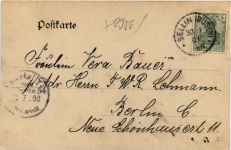 Postkarte
SELLIN
Fräulein Vera Bauer
p. Adr. Herrn J. W. R. Lehmann.
Berlin C.
Neue Schönhauserst 11